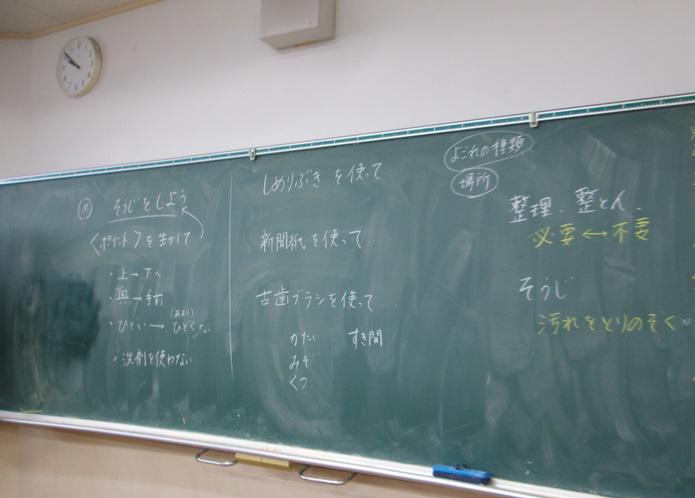 よごれの種類
場所
整理、整とん、
必要 ↔ 不要
そうじ
汚れをとりのぞく
しめりぶき を使って...
新聞紙 を使って....
古歯ブラシを使って...
かたい すき間
みぞ
くつ
そうじをしよう
〈ポイント〉を生かして
・上→下へ
・奥→手前
(あまり)
・ひどい → ひどくない
・洗剤を使わない